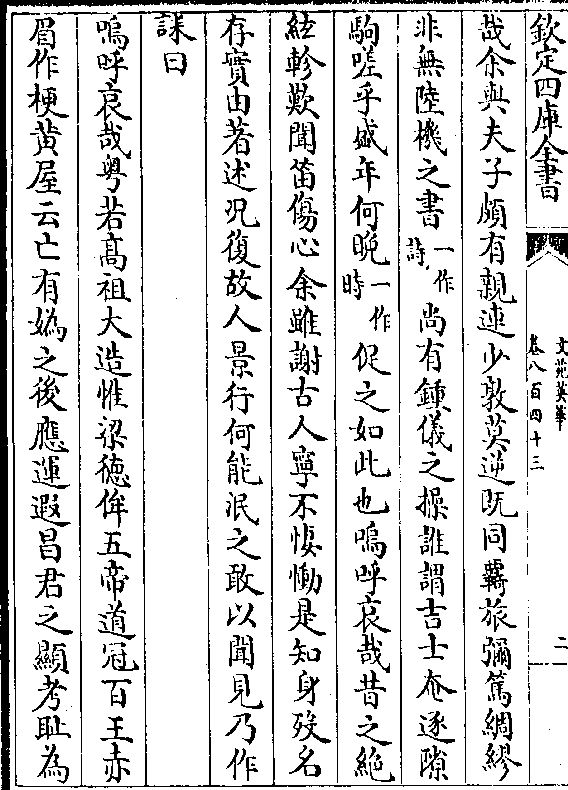 欽定四庫全書
文苑英華
卷八百四十三
二
哉余與夫子頗有親連少敦莫逆既同羈旅彌篤綢繆
非無陸機之書一作詩尚有鍾儀之操誰謂吉士奄逐隙
駒嗟乎盛年何晩一作時促之如此也嗚呼哀哉昔之絶
絃軫歎聞笛傷心余雖謝古人寧不悽慟是知身殁名
存實由著述况復故人景行何能泯之敢以聞見乃作
誄曰
嗚呼哀哉粤若髙祖大造惟梁德侔五帝道冠百王赤
眉作梗黄屋云亡有媯之後應運遐昌君之顯考耻為